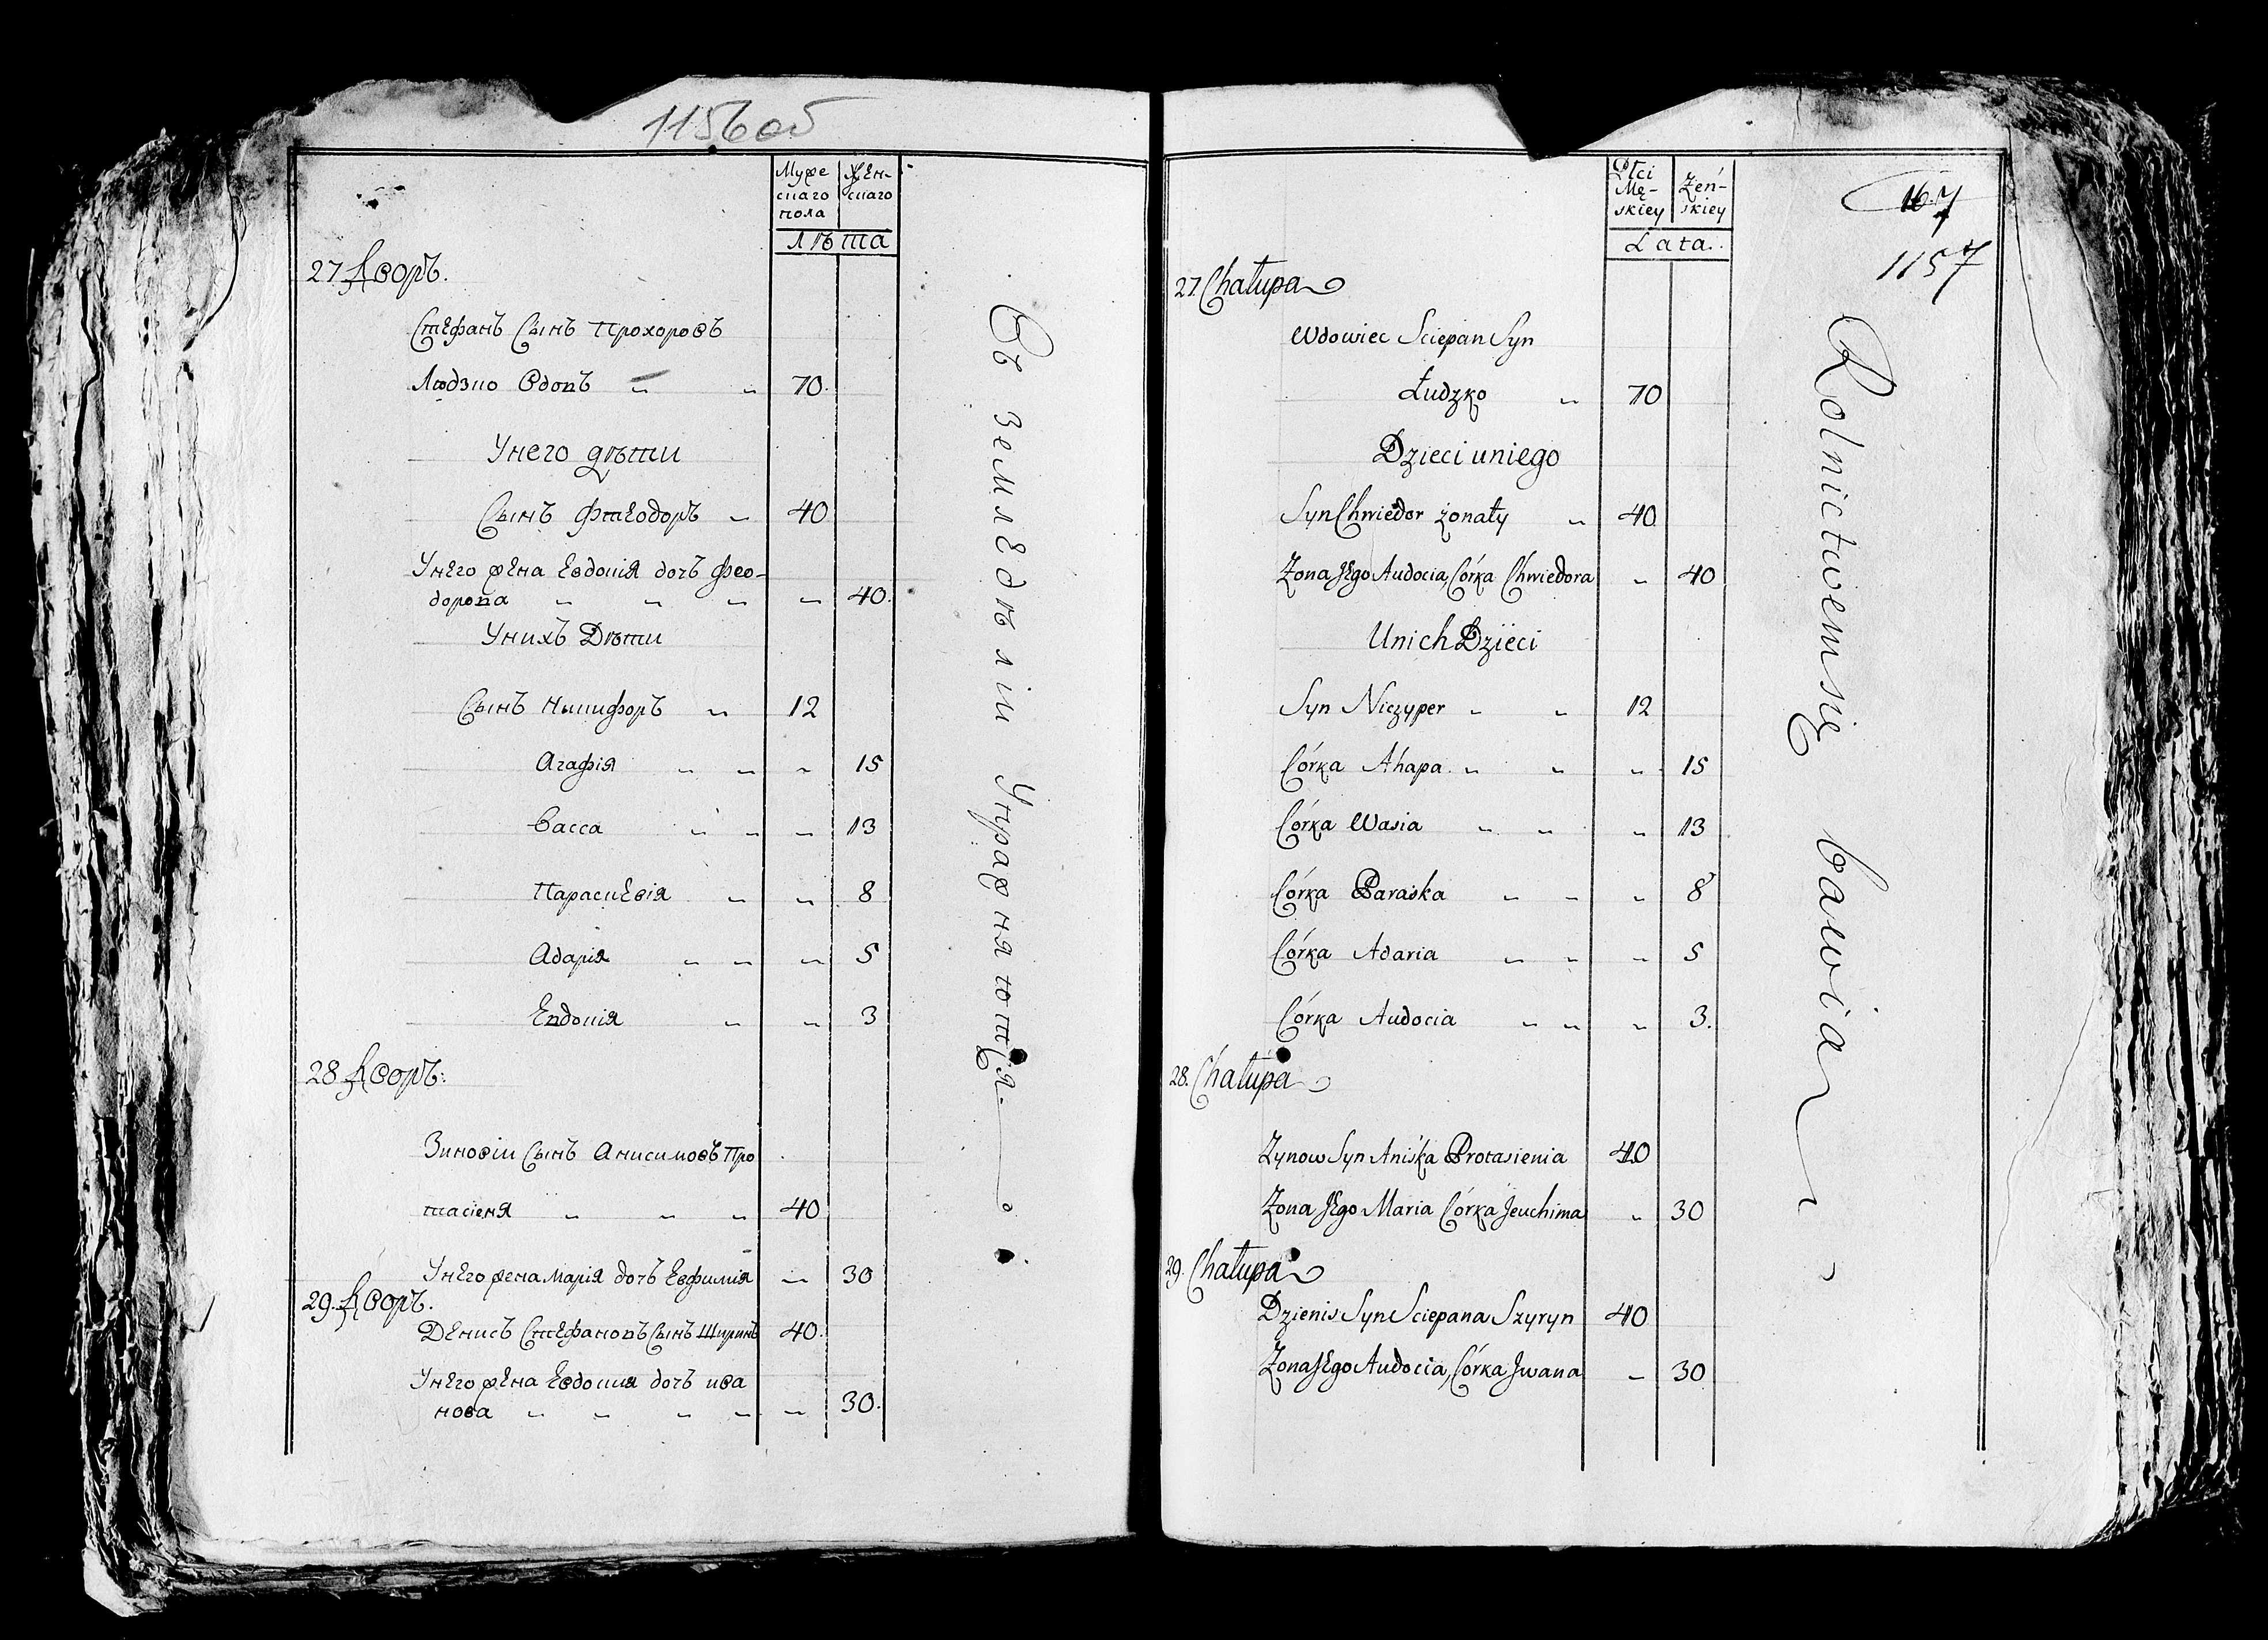 1156об
Муже
скаго
пола
Жен-
скаго
Лѣта
27 Дворъ.
Стефанъ Сынъ Прохоровъ
Людзко Вдовъ " " 70.
Унего дѣти
Сынъ Фтеодоръ " 40
Унего жена Евдокія дочь Фео-
дорова " " " " 40.
Унихъ Дѣти
Сынъ Никифоръ " 12
Агафія " " " 15
Васса " " " 13
Параскевія " " 8
Адарія " " " 5
Евдокія " " 3
28 Дворъ:
Зиновіи Сынъ Анисимовъ Про
тасіеня " " " 40
Унего жена Марія дочь Евфимія " 30
29. Дворъ.
Денисъ Стефановъ Сынъ Ширинъ 40.
Унего жена Евдокия дочь ива
нова " " " " " 30.
Въ земледѣліи УпражняютСя.
Płci
Mę-
skiey
Żeń-
skiey
Lata.
167
1157
27 Chałupa
Wdowiec Sciepan Syn
Łudzko " 70
Dzieci uniego
Syn Chwiedor żonaty " 40
Żona Jego Audocia, Córka Chwiedora " 40
Unich Dzieci
Syn Niczyper " " 12
Córka Ahapa " " " 15
Córka Wasia " " " 13
Córka Paraska " " " 8
Córka Adaria " " " 5
Córka Audocia " " " 3.
28. Chałupa
Zynow Syn Aniśka Protasienia 40
Żona Jego Maria Córka Jeuchima " 30
29. Chałupa
Dzienis Syn Sciepana Szyryn 40
Żona Jego Audocia, Córka Jwana " 30
Rolnictwemsię bawia